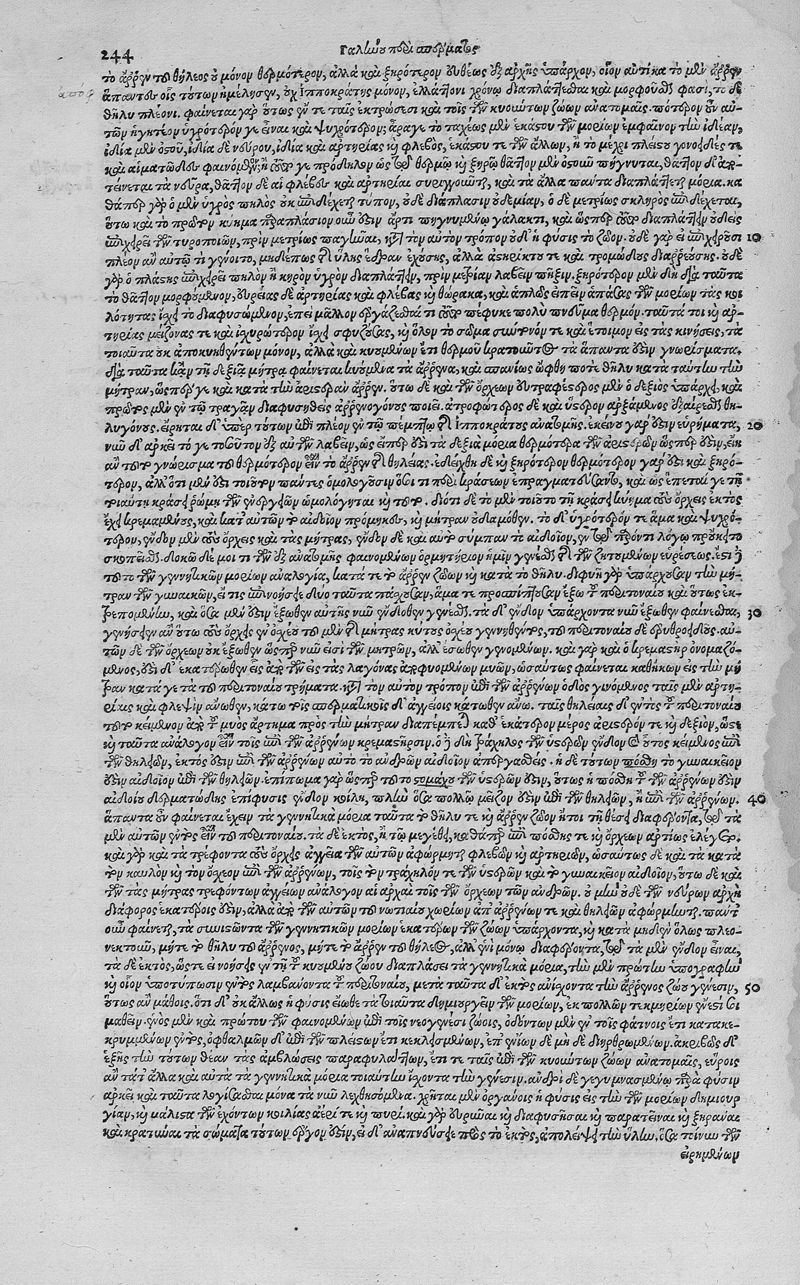 244 Γαληνοῦ περὶ σπέρματος
τὸ ἄρρεν τοῦ θήλεος οὐ μόνον θερμότερον, ἀλλὰ καὶ ξηρότερον εὐθέως ἐξ ἀρχῆς ὑπάρχον, οἷον αὐτίκα τὸ μὲν ἄρρεν
ἅπαντες οἷς τούτων ἠμέλησεν, οὐχ Ἱπποκράτης μόνον, ἐλάττονι χρόνῳ διαπλάττεσθαι καὶ μορφοῦσθαί φασι, τὸ δὲ
θῆλυ πλέονι. φαίνεται γὰρ οὕτως ἔν τε ταῖς ἐκτρώσεσι καὶ τοῖς τῶν κυούντων ζώων ἀνατομαῖς. πότερον οὖν αὐ-
τῶν ἡγητέον ὑγρότερόν γε εἶναι καὶ ψυχρότερον; ἆρά γε τὸ ταχέως μὲν ἑκάστου τῶν μορίων ἐμφαῖνον τὴν ἰδέαν,
ἰδίᾳ μὲν ὀστοῦ, ἰδίᾳ δὲ νεύρου, ἰδίᾳ καὶ ἀρτηρίας καὶ φλεβὸς, ἑκάστου τε τῶν ἄλλων, ἢ τὸ μέχρι πλείστου γονοειδές τε
καὶ αἱματῶδες φαινόμενον; ἢ τοῦτό γε πρόδηλον ὡς τῷ θερμῷ καὶ ξηρῷ θᾶττον μὲν ὀστοῦν πήγνυται, θᾶττον δὲ ἀπο-
τείνεται τὰ νεῦρα, θᾶττον δὲ αἱ φλέβες καὶ ἀρτηρίαι συριγγοῦνται, καὶ τὰ ἄλλα πάντα διαπλάττεται μόρια. κα
θάπερ γὰρ ὁ μὲν ὑγρὸς πηλὸς οὐκ ἐπιδέχεται τύπον, οὐδὲ διάπλασιν οὐδεμίαν, ὁ δὲ μετρίως σκληρὸς ἐπιδέχεται,
οὕτω καὶ τὸ πρῶτον κύημα παραπλάσιον οὖν ἐστὶν ἄρτι πηγνυμένῳ γάλακτι, καὶ ὥσπερ τοῦτο διαπλάττειν οὐδεὶς
ἐπιχειρεῖ τῶν τυροποιῶν, πρὶν μετρίως παγῆναι, κατὰ τὸν αὐτὸν τρόπον οὐδ' ἡ φύσις τὸ ζῶον. οὐδὲ γὰρ εἰ ἐπιχειροῖσι 10
πλέον ἂν αὐτῷ τι γένοιτο, μηδέπω τῆς ὕλης ἕδραν ἐχούσης, ἀλλὰ ἀστηρίκτου τε καὶ τρομώδους διαρρεούσης. οὐδὲ
γὰρ ὁ πλάστης ἐπιχειρεῖ πηλὸν ἢ κηρὸν ὑγρὸν διαπλάττειν, πρὶν μετρίαν λαβεῖν πῆξιν. ξηρότερον μὲν δὴ διὰ ταῦτα
τὸ θᾶττον μορφούμενον, εὐρείας δὲ ἀρτηρίας καὶ φλέβας καὶ θώρακα, καὶ ἁπλῶς εἰπεῖν ἁπάσας τῶν μορίων τὰς κοι
λότητας ἴσχει τὸ διαφυσώμενον, ἐπεὶ μᾶλλον ἐργάζεσθαί τι τοῦτο πέφυκε πολὺ πνεῦμα θερμόν. ταῦτά τοι καὶ ἀρ-
τηρίας μείζονας τε καὶ ἰσχυρότερον ἴσχει σφυζούσας, καὶ ὅλον τὸ σῶμα σύντονόν τε καὶ ἕτοιμον εἰς τὰς κινήσεις, τὰ
τοιαῦτα οὐκ ἀποκυηθέντων μόνον, ἀλλὰ καὶ κυουμένων ἔτι θερμοῦ κρατοῦντος τὰ ἅπαντα ἐστὶν γνωρίσματα.
διὰ ταῦτα κἂν τῇ δεξιᾷ μήτρᾳ φαίνεται κυούμενα τὰ ἄρρενα, καὶ σπανίως ὤφθη ποτὲ θῆλυ κατὰ ταύτην τὴν
μήτραν, ὥσπερ γε καὶ κατὰ τὴν ἀριστερὰν ἄρρεν. οὕτω δὲ καὶ τῶν ὄρχεων εὐτραφέστερος μὲν ὁ δεξιὸς ὑπάρχει, καὶ
πρῶτος μὲν ἐν τῷ τραγᾷν διαφυσηθεὶς ἀρρενογόνους ποιεῖ. ἀτροφώτερος δὲ καὶ ὕστερος ἀρξάμενος ἐξαίρεσθαι θη-
λυγόνους. εἴρηται δ' ὑπὲρ τούτων ἐπὶ πλέον ἐν τῷ πέμπτῳ τῆς Ἱπποκράτους ἀνατομῆς. ἐκείνου γὰρ ἐστὶν εὑρήματα, 20
νυνὶ δ' ἀρκεῖ τό γε τοσοῦτον ἐξ αὐτῶν λαβεῖν, ὡς εἴπερ ἐστὶ τὰ δεξιὰ μόρια θερμότερα τῶν ἀριστερῶν ὥσπερ ἐστὶν, εἴη
ἂν τοῦτο γνώρισμα τοῦ θερμότερον εἶναι τὸ ἄρρεν τῆς θηλείας. ἐδείχθη δὲ καὶ ξηρότερον θερμότερον γάρ ἐστι καὶ ξηρό-
τερον, ἀλλ' ὅτι μὲν ἐστὶ τοιοῦτον πάντες ὁμολογοῦσιν ὅσοι τι περὶ κράσεων ἐπραγματεύσαντο, καὶ ὡς ἕπεταί γε τῇ
τοιαύτῃ κράσει ῥώμη τῶν ἐνεργειῶν ὡμολόγηται καὶ τοῦτο. διότι δὲ τὸ μὲν τοιοῦτο τῇ κράσει κύημα τοὺς ὄρχεις ἐκτὸς
ἔχει κρεμαμένους, καὶ κατ' αὐτῶν τὸ αἰδοῖον προμηκὲς, καὶ μήτραν οὐδαμόθεν. τὸ δ' ὑγρότερόν τε ἅμα καὶ ψυχρό-
τερον, ἔνδον μὲν τοὺς ὄρχεις καὶ τὰς μήτρας, ἔνδον δὲ καὶ αὐτὸ σύμπαν τὸ αἰδοῖον, ἐν τῷ παρόντι λόγῳ πρόκειται
σκοπεῖσθαι. δοκῶ δέ μοί τι τῶν ἐξ ἀνατομῆς φαινομένων ὁρμητήριον ἡμῖν γενέσθαι τῆς τῶν ζητουμένων εὑρέσεως. ἔστι δὲ
τοῦτο τῶν γεννητικῶν μορίων ἀναλογία, κατά τε τὸ ἄρρεν ζῶον καὶ κατὰ τὸ θῆλυ. διφυῆ γὰρ ὑπάρχουσαν τὴν μή-
τραν τῶν γυναικῶν, εἴ τις ἐπινοήσειε δύο ταῦτα πάσχειν, ἅμα τε προσπίπτουσαν ἔξω τοῦ περιτοναίου καὶ οὕτως ἐκ-
τρεπομένην, καὶ ὅσα μὲν ἐστὶν ἔξωθεν αὐτῆς νῦν ἔνδοθεν γενέσθαι. τὰ δ' ἔνδον ὑπάρχοντα νῦν ἔξωθεν φαίνεσθαι, 30
γεννήσειεν ἂν οὕτω τοὺς ὄρχεις ἐν ὄσχεῳ τὸ μὲν τῆς μήτρας κύτος ὄσχεον γεννηθέντος, τοῦ περιτοναίου δὲ ἐρυθροειδοῦς. αὐ-
τῶν δὲ τῶν ὄρχεων οὐκ ἔξωθεν ὥσπερ νῦν εἰσὶ τῶν μητρῶν, ἀλλ' ἔσωθεν γενομένων. καὶ γὰρ καὶ ὁ κρεμαστὴρ ὀνομαζό-
μενος, ἐστὶ δ' ἑκατέρωθεν εἷς ἀπὸ τῶν εἰς τὰς λαγόνας ἀποφυομένων μυῶν, ὡσαύτως φαίνεται καθήκων εἰς τὴν μή
τραν κατά γε τὰ τοῦ περιτοναίου τρήματα. κατὰ τὸν αὐτὸν τρόπον ἐπὶ τῶν ἀρρένων ὁδὸς γινόμενος ταῖς μὲν ἀρτη-
ρίαις καὶ φλεψὶν ἄνωθεν, κάτω τοῖς σπερματικοῖς δ' ἀγγείοις κάτωθεν ἄνω. ταῖς θηλείαις δ' ἐντὸς τοῦ περιτοναίου
τοῦτο κείμενον ἀπὸ τοῦ μυὸς ἄρτημα πρὸς τὴν μήτραν διαπέμπεται καθ' ἑκάτερον μέρος ἀριστερόν τε καὶ δεξιὸν, ὥστε
καὶ ταῦτα ἀνάλογον εἶναι τοῖς ἐπὶ τῶν ἀρρένων κρεμαστῆρσιν. ὁ δὲ δὴ τράχηλος τῶν ὑστερῶν ἔνδον οὗτος κείμενος ἐπὶ
τῶν θηλειῶν, ἐκτὸς ἐστὶν ἐπὶ τῶν ἀρρένων αὐτὸ τὸ ἀνδρῶν αἰδοῖον ἀπεργασθείς. ἡ δὲ τούτων πόσθη τὸ γυναικεῖον
ἐστὶν αἰδοῖον ἐπὶ τῶν θηλειῶν. ἐπίπωμα γὰρ ὥσπερ τοῦτο στομάχου τῶν ὑστερῶν ἐστὶν, οὕτως ἡ πόσθη τοῦ τῶν ἀρρένων ἐστὶν
αἰδοίου δερματώδης ἐπίφυσις ἔνδον κοίλη, πλὴν ὅσα πολλῷ μεῖζον ἐστὶν ἐπὶ τῶν θηλειῶν, ἢ ἐπὶ τῶν ἀρρένων. 40
ἅπαντα οὖν φαίνεται ἔχειν τὰ γεννητικὰ μόρια ταὐτὰ τὸ θῆλυ τε καὶ ἄρρεν ζῶον ἤτοι τῇ θέσει διαφέροντα, τῷ τὰ
μὲν αὐτῶν ἐντὸς εἶναι τοῦ περιτοναίου. τὰ δὲ ἐκτὸς, ἢ τῷ μεγέθει, καθάπερ ἐπὶ πόσθης τε καὶ ὄρχεων ἀρτίως ἐλέγετο.
καὶ γὰρ καὶ τὰ τρέφοντα τοὺς ὄρχεις ἀγγεῖα τῶν αὐτῶν ἀφόρμηται φλεβῶν καὶ ἀρτηριῶν, ὡσαύτως δὲ καὶ τὰ κατὰ
τὸν καυλὸν καὶ τὸν ὄσχεον ἐπὶ τῶν ἀρρένων, τοῖς τὸν τράχηλόν τε τῶν ὑστερῶν καὶ τὸ γυναικεῖον αἰδοῖον, οὕτω δὲ καὶ
τῶν τὰς μήτρας τρεφόντων ἀγγείων ἀνάλογον αἱ ἀρχαὶ τοῖς τῶν ὄρχεων τῶν ἀνδρῶν. οὐ μὴν οὐδὲ τῶν νεύρων ἀρχὴ
διάφορος ἑκατέροις ἐστὶν, ἀλλὰ ἀπὸ τῶν αὐτῶν τοῦ νωτιαίου χωρίων ἀπ' ἀρρένων τε καὶ θηλειῶν ἀφόρμηται. πάντ'
οὖν φαίνεται, τὰ συνιόντα τῶν γεννητικῶν μορίων ἑκατέρῳ τῶν ζώων ὑπάρχοντα, καὶ κατὰ μηδὲν ὅλως πλεο-
νεκτοῦν, μήτε τὸ θῆλυ τοῦ ἄρρενος, μήτε τὸ ἄρρεν τοῦ θήλεος, ἀλλ' ἑνὶ μόνῳ διαφέροντα, τῷ τὰ μὲν ἔνδον εἶναι,
τὰ δὲ ἐκτὸς, ὥστε εἰ νοήσῃς ἐν τῇ τοῦ κυουμένου ζώου διαπλάσει τὰ γεννητικὰ μόρια, τὴν μὲν πρώτην ὑπογραφὴν
καὶ οἷον ὑποτύπωσιν ἐντὸς λαμβάνοντα τοῦ περιτοναίου, μετὰ ταῦτα δ' ἐκτὸς ἀνίσχοντα τὴν ἄρρενος ζώου γένεσιν, 50
οὕτως ἂν μάθοις. ὅτι δ' οὐκ ἄλλως ἡ φύσις εἴωθε τὰ τοιαῦτα δημιουργεῖν τῶν μορίων, ἐκ πολλῶν τεκμηρίων ἔνεστί σοι
μαθεῖν. ἑνὸς μὲν καὶ πρώτου τῶν φαινομένων ἐπὶ τοῖς νεογενέσι ζώοις, ὀδόντων μὲν ἐν τοῖς φάτνοις ἔτι κατακε-
κρυμμένων ἐντὸς, ὀφθαλμῶν δ' ἐπὶ τῶν πλείστων ἔτι κεκλεισμένων, ἐπ' ἐνίων δὲ μηδὲ διηρθρωμένων. ἀκριβῶς δ'
ἑξῆς τὴν τούτων θέαν τὰς ἀμβλώσεις παραφυλάττων, ἔτι τε ταῖς ἐπὶ τῶν κυούντων ζώων ἀνατομαῖς, εὕροις
ἂν τά τ' ἄλλα καὶ αὐτὰ τὰ γεννητικὰ μόρια τοιαύτην ἴσχοντα τὴν γένεσιν. ἀνδρὶ δὲ γεγυμνασμένῳ περὶ φύσιν
ἀρκεῖ καὶ ταῦτα λογίζεσθαι μόνα τὰ νῦν λεχθησόμενα. χρῆται μὲν ὀργάνοις ἡ φύσις εἰς τὴν τῶν μορίων δημιουρ
γίαν, καὶ μάλιστα τῶν ἐχόντων κοιλίας ἀέρι τε καὶ πυρί. καὶ γὰρ εὐρῦναι καὶ διαφυσῆσαι καὶ παρατεῖναι καὶ ξηρᾶναι
καὶ κρατῦναι τὰ σώματα τούτων ἔργον ἐστὶν, εἰ δ' ἀναπνεύσειε πρὸς τὸ ἐκτὸς, ἀπολείψει τὴν ὕλην, ὅσα τοίνυν τῶν
εἰρημένων